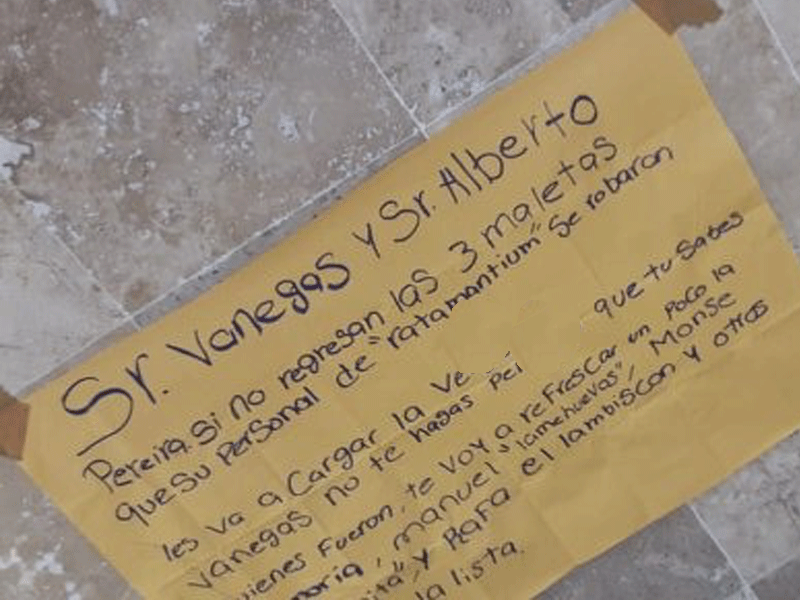 Sr. Vanegas y Sr. Alberto
Pereira. si no regresan las 3 maletas
que su personal de "ratamantium" se robaron
les va a cargar la ve
Vanegas no te hagas pe que tu sabes
quienes fueron, te voy a refrescar un poco la
moria, manuel "lamehuevos", Monse
y Rafa el lambiscon y otros
la lista.